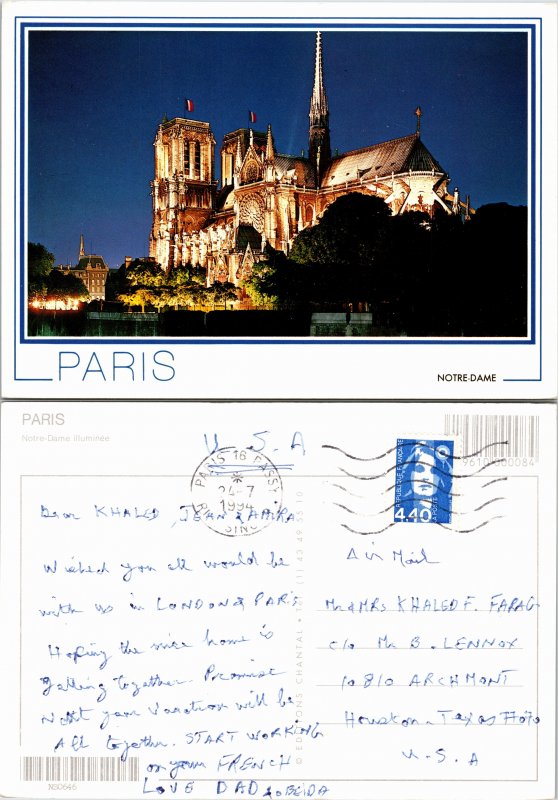 PARIS
NOTRE-DAME
PARIS
Notre-Dame illuminée
U.S.A
PARIS 16 PASSY
1994
SING
REPUBLIQUE FRANÇAISE
LA POSTE
4,40
9610 000084
Dear KHALED, JEAN
Wished you all would be
with us in LONDON & PARIS
Hoping the nice home is
getting together. Promise
Next year Vacation will be
All together. START WORKING
on your FRENCH
LOVE DAD & OBEIDA
© EDITIONS CHANTAL • Tél. (1) 43 49 55 10
Air Mail
Mr & MRS KHALED F. FARAG
C/o Mr B. LENNOX
10810 ARCHMONT
Houston - Texas 77070
U.S.A
NS0646